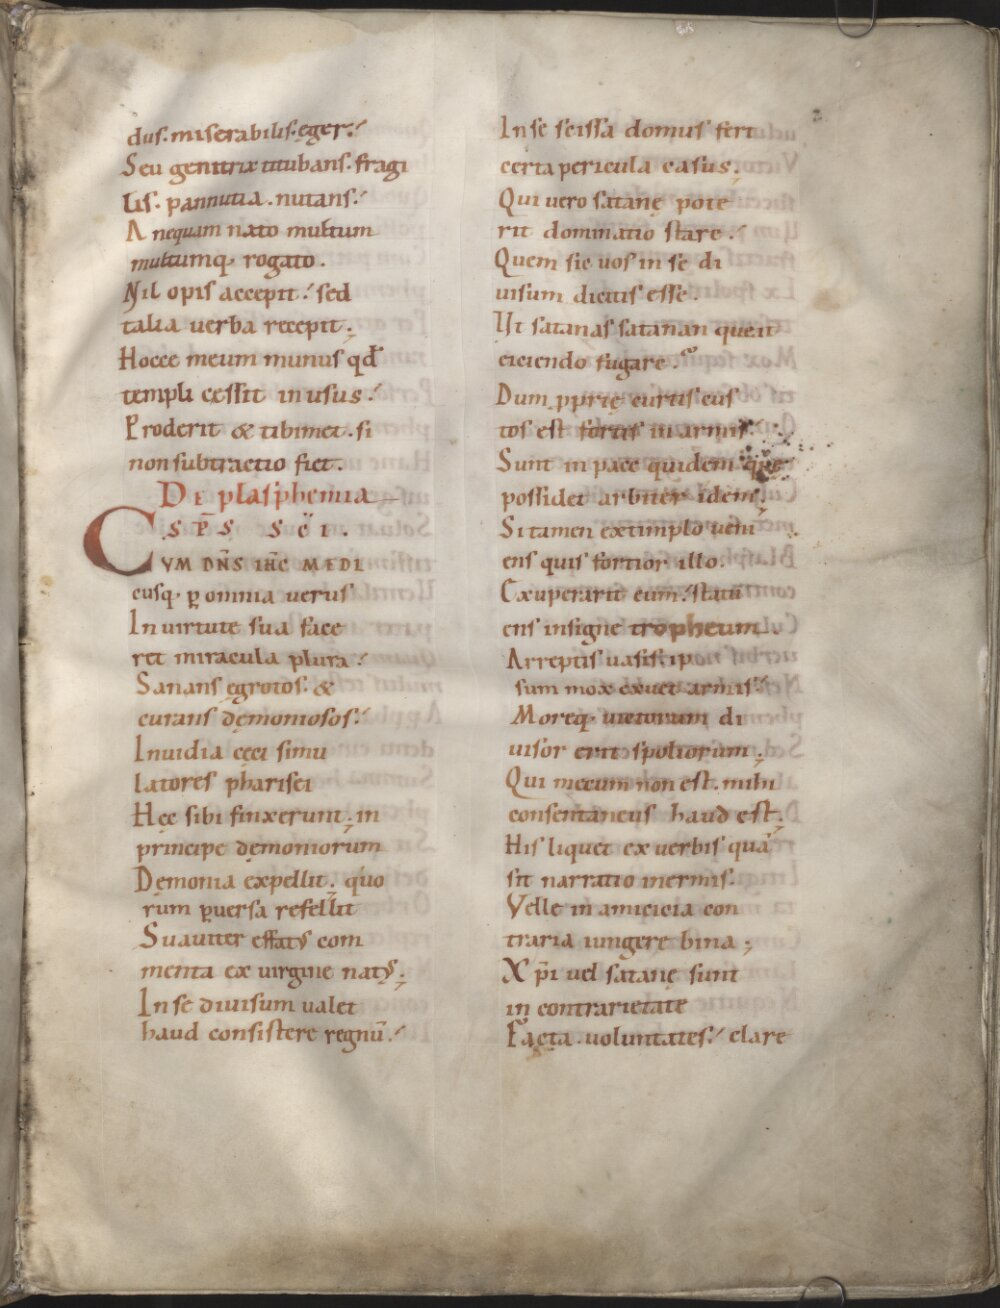 dus. miserabilis. ęger.
Seu genitrix titubans. fragi
lis. pannutia. nutans.
A nequam nato multum
multumq. rogato.
Nil opis accepit. sed
talia verba recepit.
Hocce meum munus qđ
templi cessit in usus.
Proderit & tibimet. si
non subtractio fiet.
De plasphemia
SP̄S SC̄I.
CVM DN̄S IH̄C MEDI
cusq. ꝑ omnia verus
In virtute sua face
ret miracula plura.
Sanans ęgrotos. &
curans dęmoniosos.
Invidia cęci simu
latores pharisei
Hęc sibi finxerunt. in
principe dęmoniorum
Dęmonia expellit. quo
rum ꝑversa refellit
Suaviter effatꝰ com
menta ex virgine natꝰ.
In se divisum valet
haud consistere regnū.
In se scissa domus fert
certa pericula casus.
Qui vero satanę pote
rit dominatio stare.
Quem sic vos in se di
uisum dicitis esse.
Ut satanas satanan queat
eiciendo fugare.
Dum ꝓprię curtis cus
tos est fortis in armis.
Sunt in pace quidem quę
possidet arbiter idem.
Si tamen extimplo veni
ens quis fortior illo.
Exuperarit eum. statu
ens insigne tropheum.
Arreptis uasis ip
sum mox exuet armis.
Moreq. victorum di
uisor erit spoliorum.
Qui mecum non est. mihi
consentaneus haud est.
His liquet ex verbis quā
sit narratio inermis.
Velle in amicicia con
traria iungere bina.
Xp̄i vel satanę sunt
in contrarietate
Facta. voluntates. clare